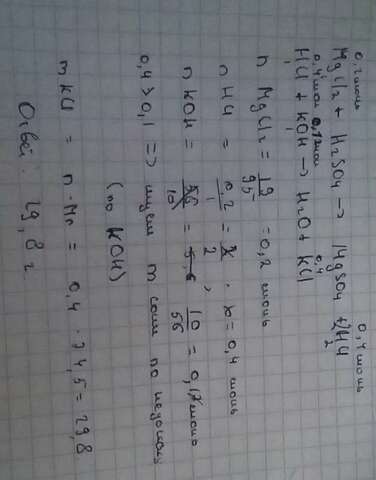 0,2 моль 0,4 моль
MgCl2 + H2SO4 → MgSO4 + 2HCl
0,4 моль 0,1 моль 0,4
HCl + KOH → H2O + KCl
1 1
n MgCl2 = 19/95 = 0,2 моль
n HCl = 0,2/1 = x/2 ; x = 0,4 моль
n KOH = = 10/56 = 0,1 моль
0,4 > 0,1 => ищем m соли по недостатку
(по KOH)
m KCl = n · Mr = 0,4 · 74,5 = 29,8
Ответ: 29,8 г